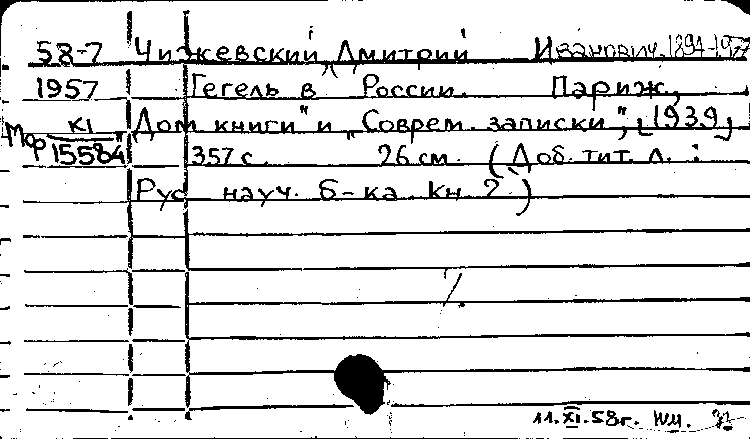 58-7 Чижевский, Дмитрий Иванович, 1894-1977
1957 Гегель в России. Париж,
Мф К1/15584 „Дом книги" и „Соврем. записки", [1939]
357 с. 26 см. (Доб. тит. л. :
Рус науч. б-ка кн 2.)
11.XI.58г.